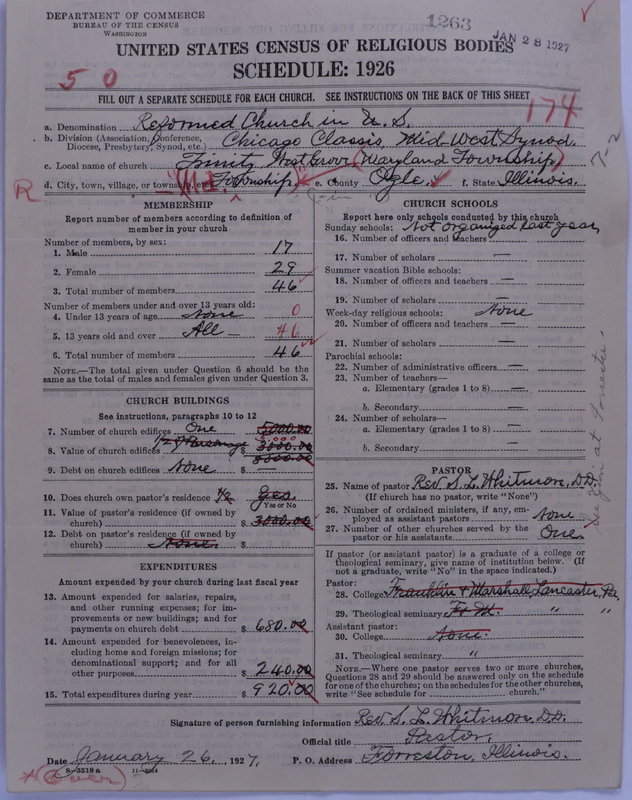 DEPARTMENT OF COMMERCE
BUREAU OF THE CENSUS
WASHINGTON
1263
JAN 28 1927
UNITED STATES CENSUS OF RELIGIOUS BODIES
SCHEDULE: 1926
5 0
FILL OUT A SEPARATE SCHEDULE FOR EACH CHURCH. SEE INSTRUCTIONS ON THE BACK OF THIS SHEET
174
a. Denomination Reformed Church in U. S.
b. Division (Association, Conference, Diocese, Presbytery, Synod, etc.) Chicago Classis, Mid-West Synod.
c. Local name of church Trinity West Grove (Maryland Township)
R d. City, town, village, or township, etc. Township e. County Ogle f. State Illinois.
MEMBERSHIP
Report number of members according to definition of
member in your church
Number of members, by sex:
1. Male 17
2. Female 29
3. Total number of members 46
Number of members under and over 13 years old:
4. Under 13 years of age None 0
5. 13 years old and over All - 46
6. Total number of members 46
NOTE.—The total given under Question 6 should be the
same as the total of males and females given under Question 3.
CHURCH BUILDINGS
See instructions, paragraphs 10 to 12
7. Number of church edifices One 5000.00
8. Value of church edifices 1/2 of Parsonage $ 3000.00
8000.00
9. Debt on church edifices None $ —
10. Does church own pastor's residence 1/2 Yes
Yes or No
11. Value of pastor's residence (if owned by
church) $ 3000.00
12. Debt on pastor's residence (if owned by
church) None. $
EXPENDITURES
Amount expended by your church during last fiscal year
13. Amount expended for salaries, repairs,
and other running expenses; for im-
provements or new buildings; and for
payments on church debt $ 680.00
14. Amount expended for benevolences, in-
cluding home and foreign missions; for
denominational support; and for all
other purposes $ 240.00
15. Total expenditures during year $ 920.00
CHURCH SCHOOLS
Report here only schools conducted by this church
Sunday schools: Not organized last year
16. Number of officers and teachers
17. Number of scholars —
Summer vacation Bible schools:
18. Number of officers and teachers —
19. Number of scholars —
Week-day religious schools: None
20. Number of officers and teachers —
21. Number of scholars —
Parochial schools:
22. Number of administrative officers —
23. Number of teachers—
a. Elementary (grades 1 to 8) —
b. Secondary —
24. Number of scholars—
a. Elementary (grades 1 to 8) —
b. Secondary —
PASTOR
25. Name of pastor Rev S. L. Whitmore, D.D.
(If church has no pastor, write "None")
26. Number of ordained ministers, if any, em-
ployed as assistant pastors None
27. Number of other churches served by the
pastor or his assistants One
If pastor (or assistant pastor) is a graduate of a college or
theological seminary, give name of institution below. (If
not a graduate, write "No" in the space indicated.)
Pastor:
28. College Franklin & Marshall, Lancaster, Pa.
29. Theological seminary F. M. " "
Assistant pastor:
30. College None.
31. Theological seminary "
NOTE.—Where one pastor serves two or more churches,
Questions 28 and 29 should be answered only on the schedule
for one of the churches; on the schedules for the other churches,
write "See schedule for church."
Signature of person furnishing information Rev S. L. Whitmore, D.D.
Official title Pastor,
Date January 26, 1927. P. O. Address Forreston, Illinois.
8-5518a 11-9234
* (Over)